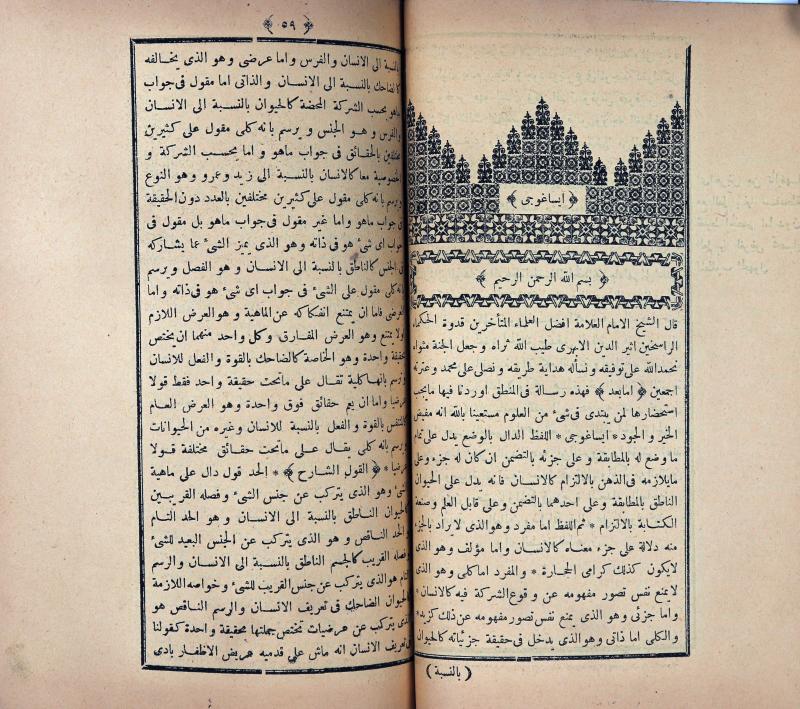 ﴿ ايساغوجى ﴾
﴿ بسم الله الرحمن الرحيم ﴾
قال الشيخ الامام العلامة افضل العلماء المتأخرين قدوة الحكماء
الراسخين اثير الدين الابهرى طيب الله ثراه و جعل الجنة مثواه
نحمدالله على توفيقه و نسأله هداية طريقه و نصلى على محمد و عترته
اجمعين ﴿ امابعد ﴾ فهذه رسالة فى المنطق اوردنا فيها مايجب
استحضارها لمن يبتدى فى شئ من العلوم مستعينا بالله انه مفيض
الخير و الجود * ايساغوجى * اللفظ الدال بالوضع يدل على تمام
ما وضع له بالمطابقة و على جزئه بالتضمن ان كان له جزء وعلى
مايلازمه فى الذهن بالالتزام كالانسان فانه يدل على الحيوان
الناطق بالمطابقة وعلى احدهما بالتضمن و على قابل العلم وصنعة
الكتابة بالالتزام * ثم اللفظ اما مفرد وهوالذى لا يراد بالجزء
منه دلالة على جزء معناه كالانسان و اما مؤلف وهو الذى
لايكون كذلك كرامى الحجارة * و المفرد اما كلى و هو الذى
لايمنع نفس تصور مفهومه عن و قوع الشركة فيه كالانسان *
و اما جزئى و هو الذى يمنع نفس تصور مفهومه عن ذلك كزيد *
و الكلى اما ذاتى وهوالذى يدخل فى حقيقة جزئياته كالحيوان
( بالنسبة )
﴿ ٥٩ ﴾
بالنسبة الى الانسان والفرس واما عرضى وهو الذى يخالفه
كالضاحك بالنسبة الى الانسان و الذاتى اما مقول فى جواب
ماهو بحسب الشركة المحضة كالحيوان بالنسبة الى الانسان
و الفرس و هو الجنس و يرسم بانه كلى مقول على كثيرين
مختلفين بالحقائق فى جواب ماهو و اما بحسب الشركة و
الخصوصية معا كالانسان بالنسبة الى زيد و عمرو و هو النوع
ويرسم بانه كلى مقول على كثيرين مختلفين بالعدد دون الحقيقة
فى جواب ماهو واما غير مقول فى جواب ماهو بل مقول فى
جواب اى شئ هو فى ذاته و هو الذى يميز الشئ عما يشاركه
فى الجنس كالناطق بالنسبة الى الانسان و هو الفصل و يرسم
بانه كلى مقول على الشئ فى جواب اى شئ هو فى ذاته و اما
العرضى فاما ان يمتنع انفكاكه عن الماهية و هو العرض اللازم
او لا يمتنع وهو العرض المفارق و كل واحد منهما ان مختص
بحقيقة واحدة و هو الخاصة كالضاحك بالقوة و الفعل للانسان
و يرسم بانها كلية تقال على ماتحت حقيقة واحد فقط قولا
عرضيا و اما ان يعم حقائق فوق واحدة و هو العرض العام
كالمتنفس بالقوة و الفعل بالنسبة للانسان وغيره من الحيوانات
ويرسم بانه كلى يقال على ماتحت حقائق مختلفة قولا
عرضيا * ﴿ القول الشارح ﴾ * الحد قول دال على ماهية
الشئ وهو الذى يتركب عن جنس الشئ و فصله القريبين
كالحيوان الناطق بالنسبة الى الانسان و هو الحد التام
و الحد الناقص و هو الذى يتركب عن الجنس البعيد للشئ
و فصله القريب كالجسم الناطق بالنسبة الى الانسان والرسم
التام هو الذى يتركب عن جنس القريب للشئ و خواصه اللازمة
كالحيوان الضاحك فى تعريف الانسان و الرسم الناقص هو
الذى يتركب عن عرضيات تختص جملتها بحقيقة واحدة كقولنا
فى تعريف الانسان انه ماش على قدميه عريض الاظفار بادى